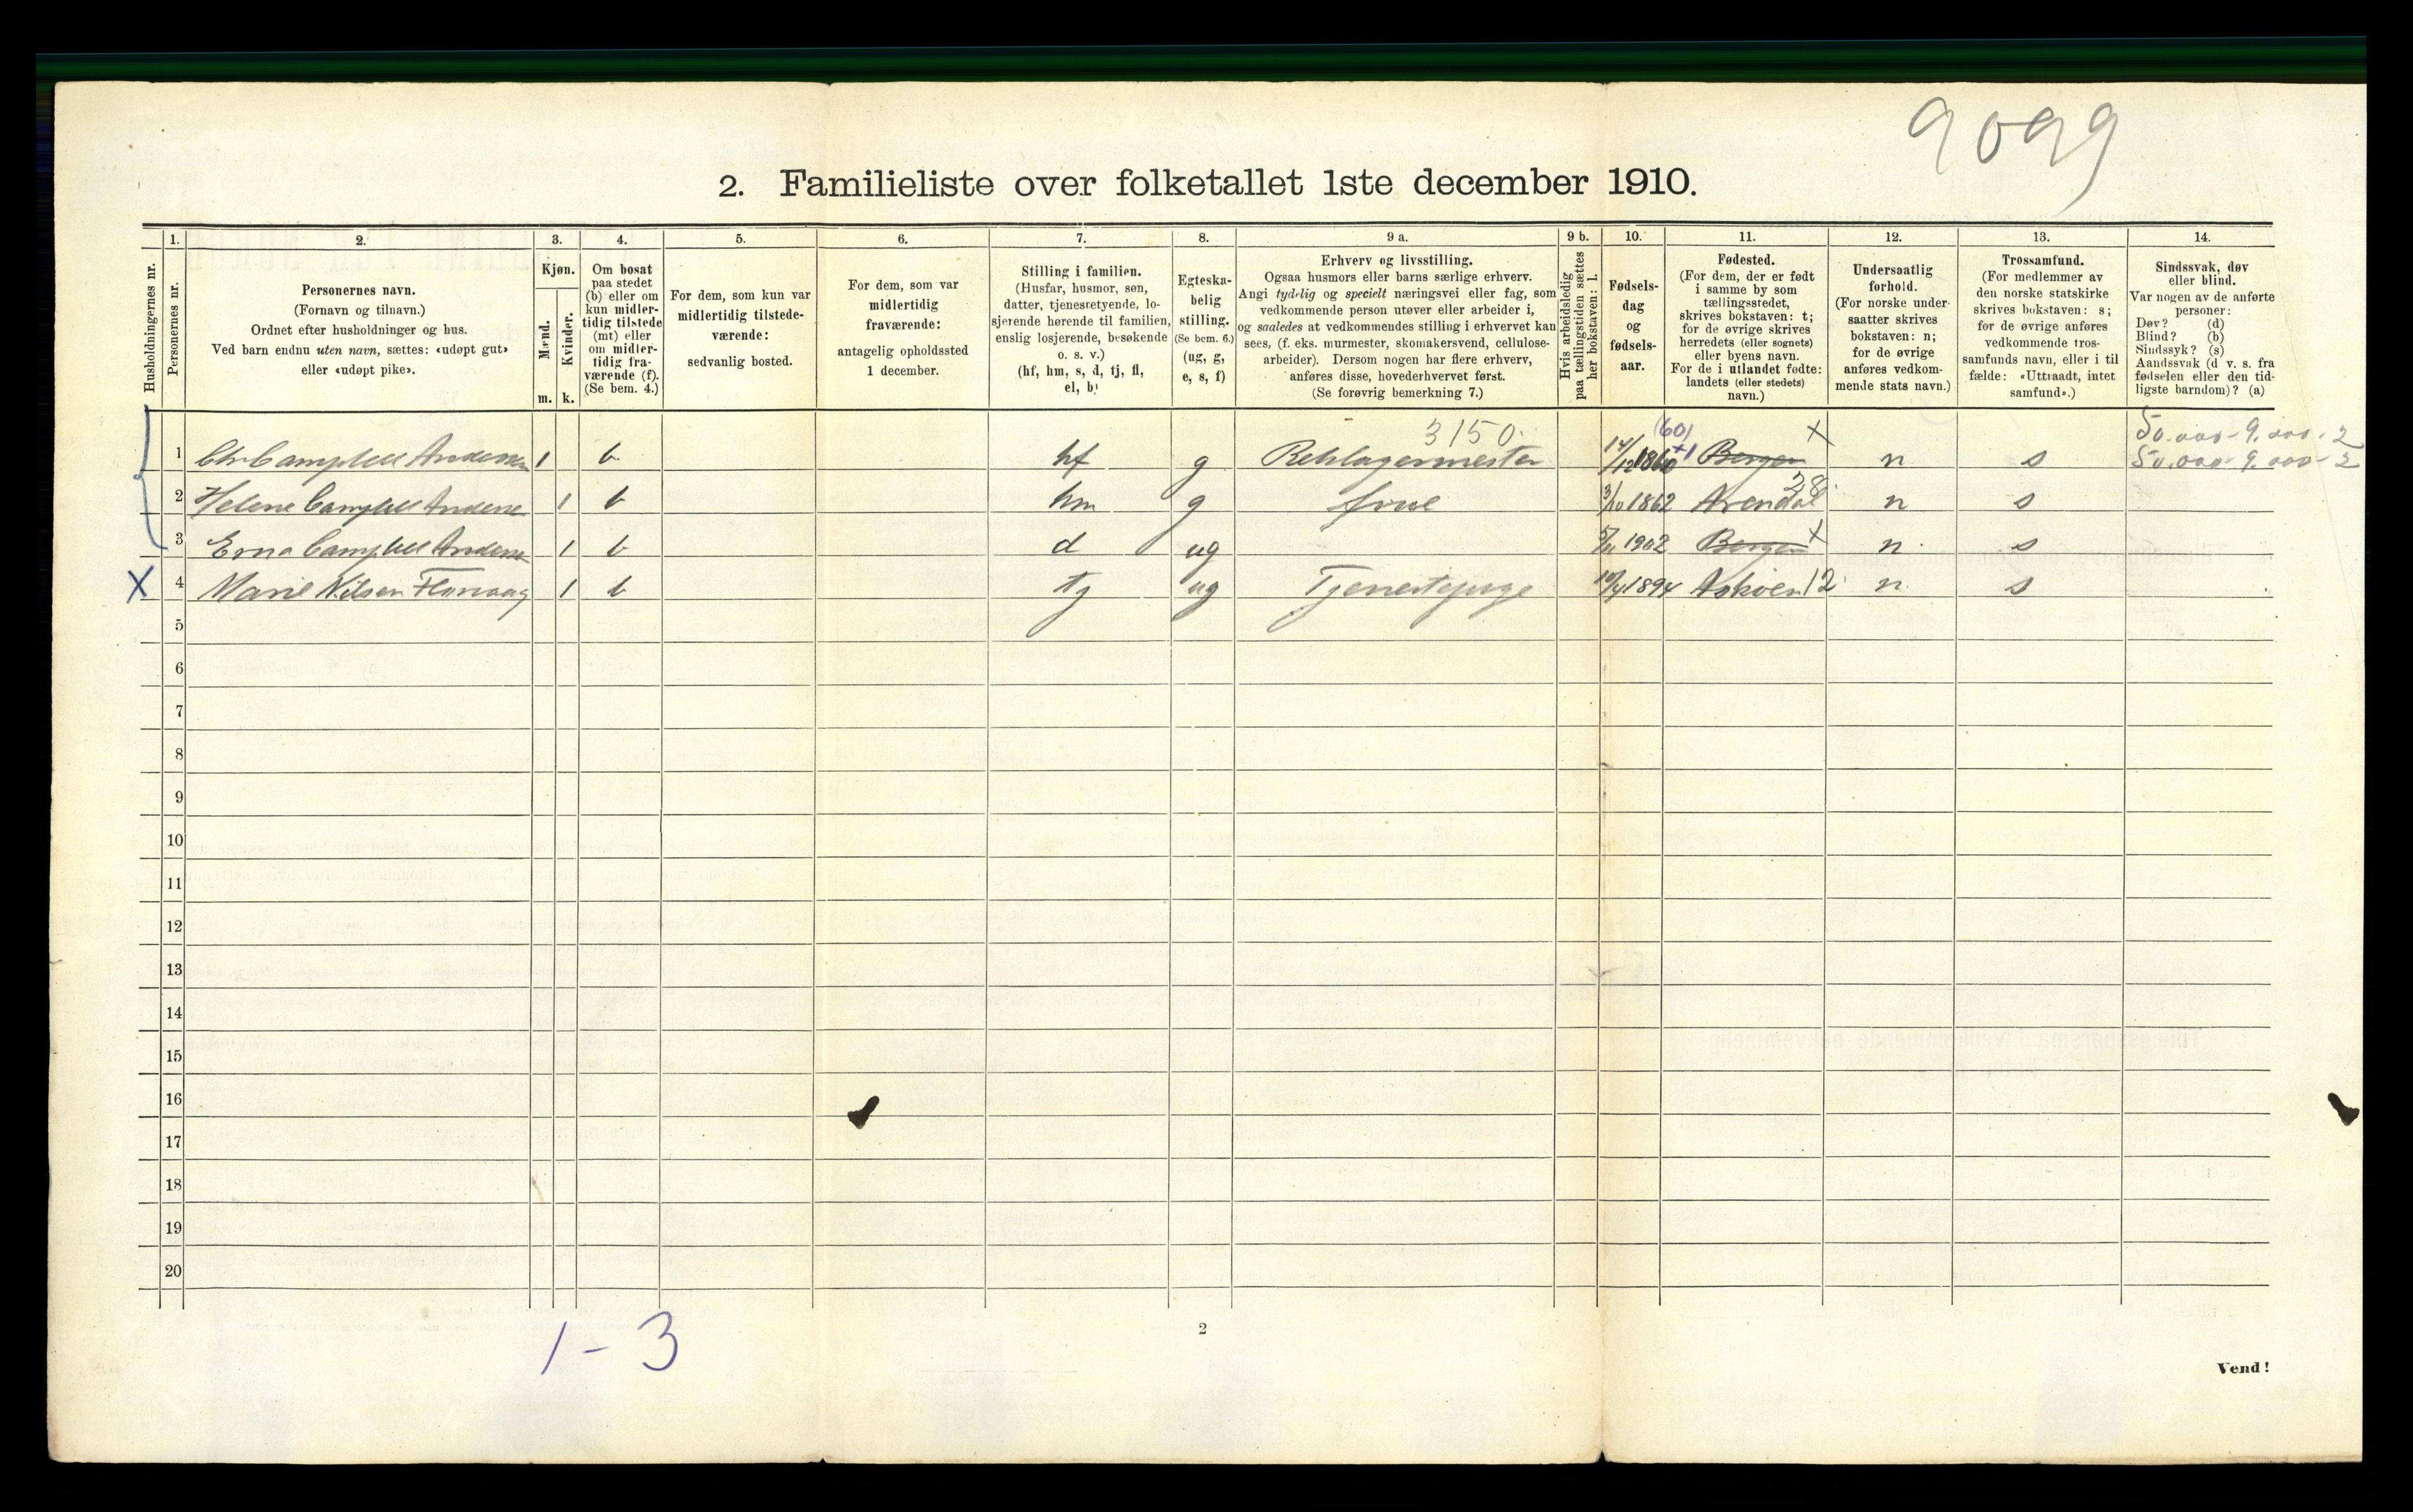 9099
2. Familieliste over folketallet 1ste december 1910.
Husholdningernes nr.
1.
Personernes nr.
2.
Personernes navn.
(Fornavn og tilnavn.)
Ordnet efter husholdninger og hus.
Ved barn endnu uten navn, sættes: «udøpt gut»
eller «udøpt pike».
3.
Kjøn.
Mænd.
Kvinder.
m. k.
4.
Om bosat
paa stedet
(b) eller om
kun midler-
tidig tilstede
(mt) eller
om midler-
tidig fra-
værende (f).
(Se bem. 4.)
5.
For dem, som kun var
midlertidig tilstede-
værende:
sedvanlig bosted.
6.
For dem, som var
midlertidig
fraværende:
antagelig opholdssted
1 december.
7.
Stilling i familien.
(Husfar, husmor, søn,
datter, tjenestetyende, lo-
sjerende hørende til familien,
enslig losjerende, besøkende
o. s. v.)
(hf, hm, s, d, tj, fl,
el, b)
8.
Egteska-
belig
stilling.
(Se bem. 6.)
(ug, g,
e, s, f)
9 a.
Erhverv og livsstilling.
Ogsaa husmors eller barns særlige erhverv.
Angi tydelig og specielt næringsvei eller fag, som
vedkommende person utøver eller arbeider i,
og saaledes at vedkommendes stilling i erhvervet kan
sees, (f. eks. murmester, skomakersvend, cellulose-
arbeider). Dersom nogen har flere erhverv,
anføres disse, hovederhvervet først.
(Se forøvrig bemerkning 7.)
9 b.
Hvis arbeidsledig
paa tællingstiden sættes
her bokstaven: l.
10.
Fødsels-
dag
og
fødsels-
aar.
11.
Fødested.
(For dem, der er født
i samme by som
tællingsstedet,
skrives bokstaven: t;
for de øvrige skrives
herredets (eller sognets)
eller byens navn.
For de i utlandet fødte:
landets (eller stedets)
navn.)
12.
Undersaatlig
forhold.
(For norske under-
saatter skrives
bokstaven: n;
for de øvrige
anføres vedkom-
mende stats navn.)
13.
Trossamfund.
(For medlemmer av
den norske statskirke
skrives bokstaven: s;
for de øvrige anføres
vedkommende tros-
samfunds navn, eller i til
fælde: «Uttraadt, intet
samfund».)
14.
Sindssvak, døv
eller blind.
Var nogen av de anførte
personer:
Døv? (d)
Blind? (b)
Sindssyk? (s)
Aandssvak (d v. s. fra
fødselen eller den tid-
ligste barndom)? (a)
3150. (60) +1 x 50.000-9.000-2
1 Chr Campbell Andersen 1 b hf g Reblagermester 14/12 1860 Bergen n s 50.000-9.000-2
2 Helene Campbell Andersen 1 b hm g frue 3/10 1862 Arendal 28. n s
3 Erna Campbell Andersen 1 b d ug 5/11 1902 Bergen x n. s
X 4 Marie Nilsen Florvaag 1 b tj ug Tjenestepige 10/4 1894 Askøen 12. n s
5
6
7
8
9
10
11
12
13
14
15
16
17
18
19
20
1 - 3
2
Vend!